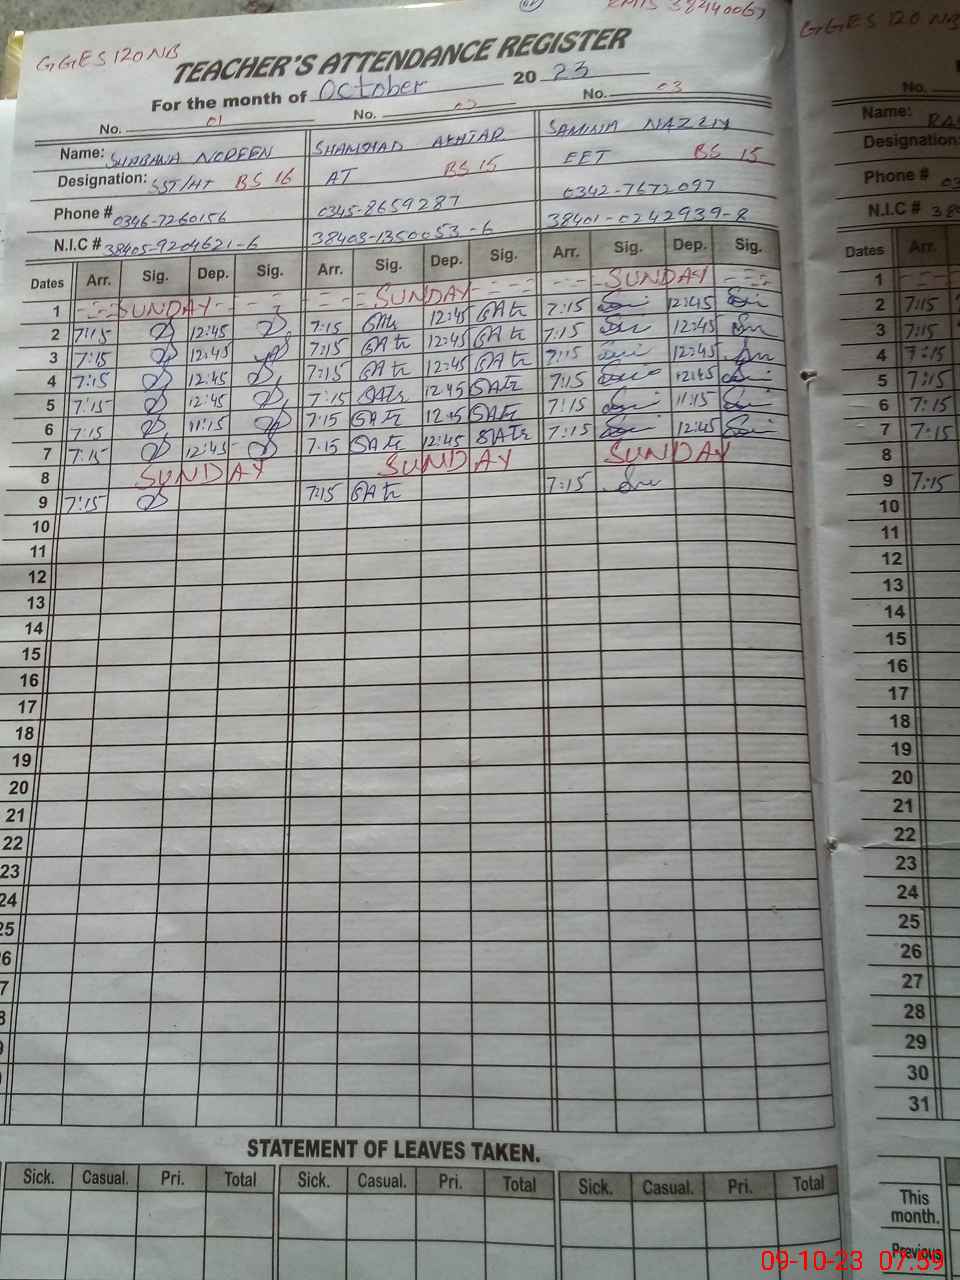 GGES 120 NB
EMIS 38440067
TEACHER'S ATTENDANCE REGISTER
For the month of October 2023
No. 01 No. 02 No. 03
Name: SHABANA NOREEN SHAMSHAD AKHTAR SAMINA NAZLIM
Designation: SST/HT BS 16 AT BS 15 EET BS 15
Phone # 0346-7260156 0345-8659287 0342-7672097
N.I.C # 38405-9204621-6 38403-1350053-6 38401-0242939-8
Dates Arr. Sig. Dep. Sig. Arr. Sig. Dep. Sig. Arr. Sig. Dep. Sig.
1 SUNDAY SUNDAY SUNDAY
2 7:15 12:45 7:15 12:45 7:15 12:45
3 7:15 12:45 7:15 12:45 7:15 12:45
4 7:15 12:45 7:15 12:45 7:15 12:45
5 7:15 12:45 7:15 12:45 7:15 12:45
6 7:15 11:15 7:15 12:45 7:15 11:15
7 7:15 12:45 7:15 12:45 7:15 12:45
8 SUNDAY SUNDAY SUNDAY
9 7:15 7:15 7:15
10
11
12
13
14
15
16
17
18
19
20
21
22
23
24
25
STATEMENT OF LEAVES TAKEN.
Sick. Casual. Pri. Total Sick. Casual. Pri. Total Sick. Casual. Pri. Total
GGES 120 NB
No.
Name:
Designation:
Phone #
N.I.C #
Dates Arr.
1
2 7:15
3 7:15
4 7:15
5 7:15
6 7:15
7 7:15
8
9 7:15
10
11
12
13
14
15
16
17
18
19
20
21
22
23
24
25
26
27
28
29
30
31
This
month.
Previous
09-10-23 07:59